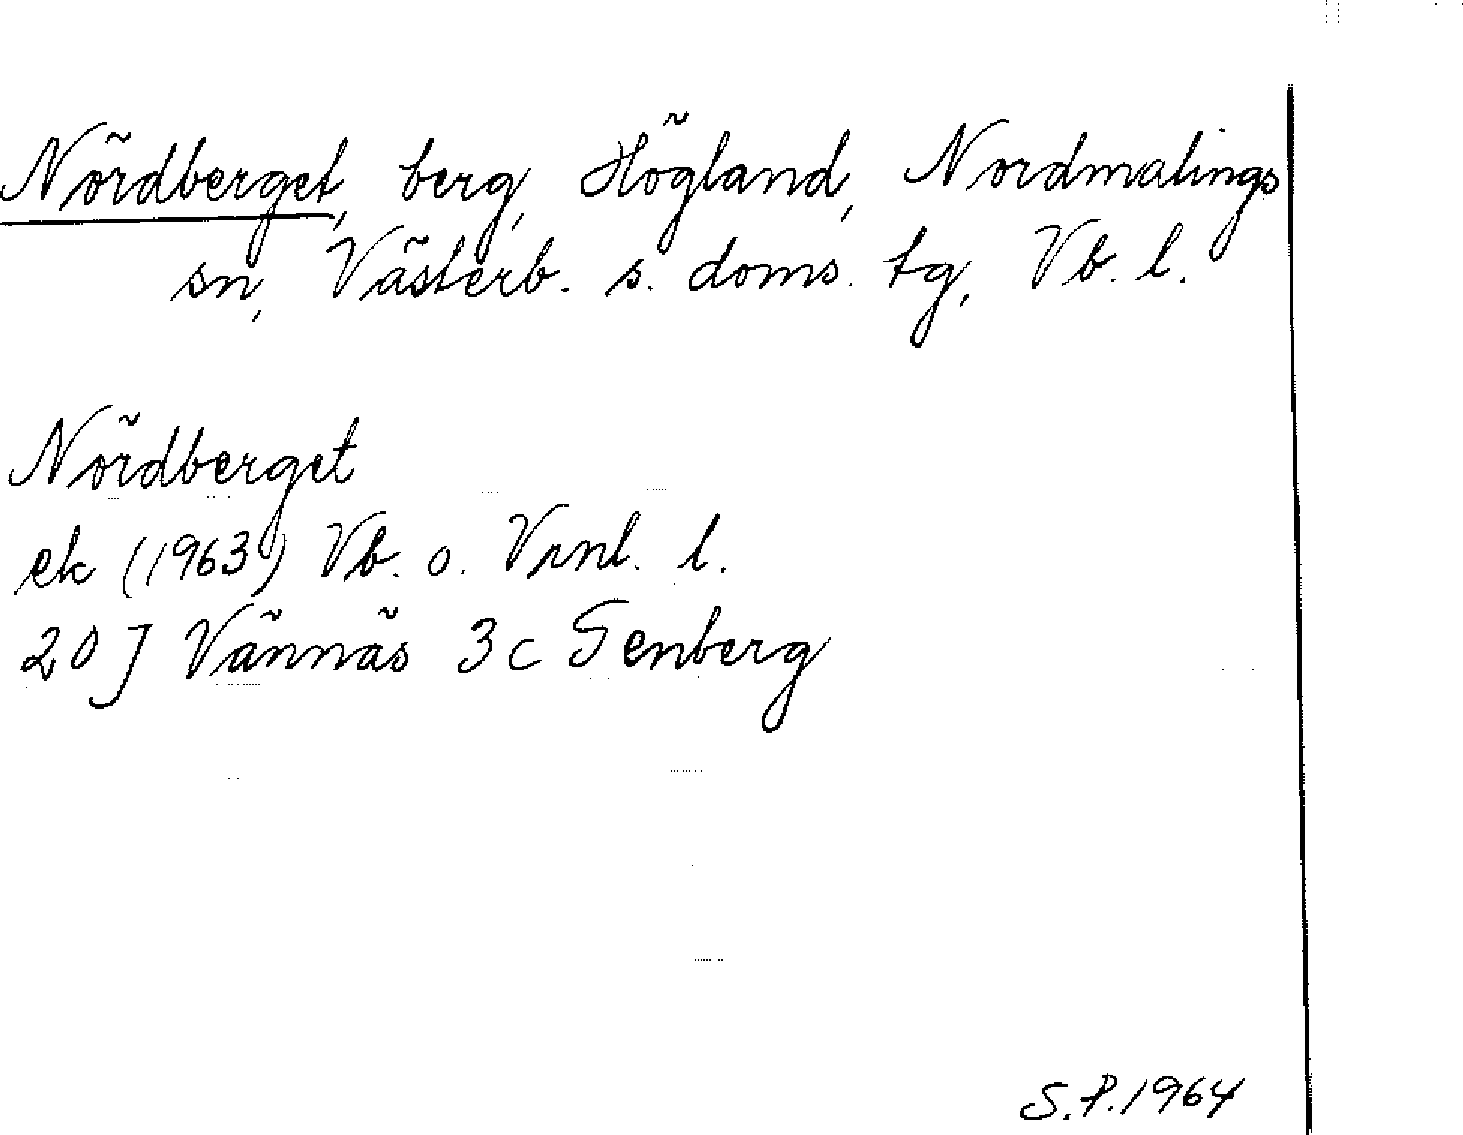 Nördberget, berg, Högland, Nordmalings
sn, Västerb. s. doms. tg, Vb. l.
Nördberget
ek (1963) Vb. o. Vrnl. l.
20 J Vännäs 3 c Genberg
S.P. 1964